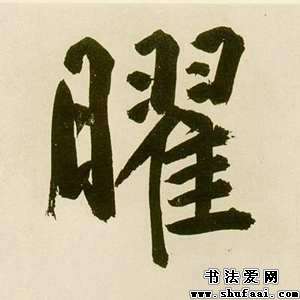 曜
书法爱网
www.shufaai.com